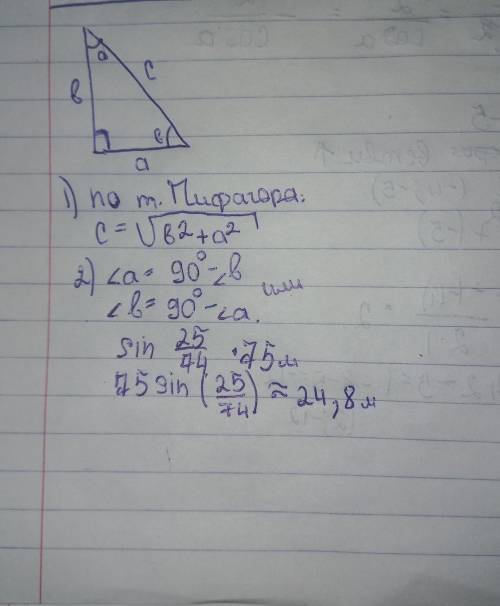 a
c
в
в
a
1) по т. Пифагора:
c = √в²+a²
2) ∠a = 90° - ∠b
или
∠b = 90° - ∠a.
sin 25/74 · 75 м
75 sin (25/74) ≈ 24,8 м